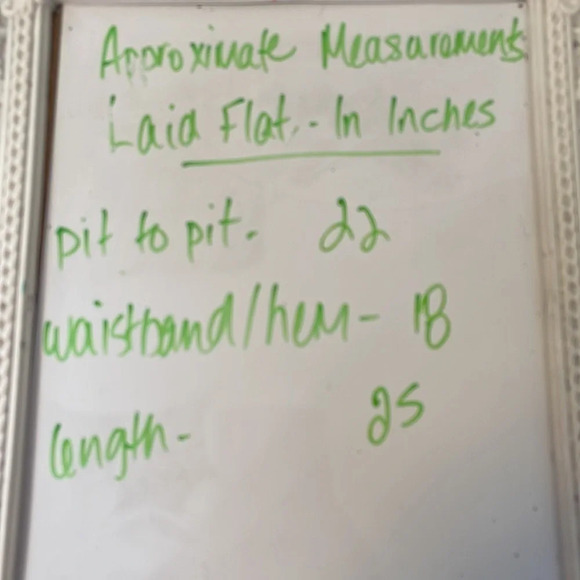 Approximate Measurements
Laid Flat. - In Inches
pit to pit - 22
waistband/hem - 18
length - 25